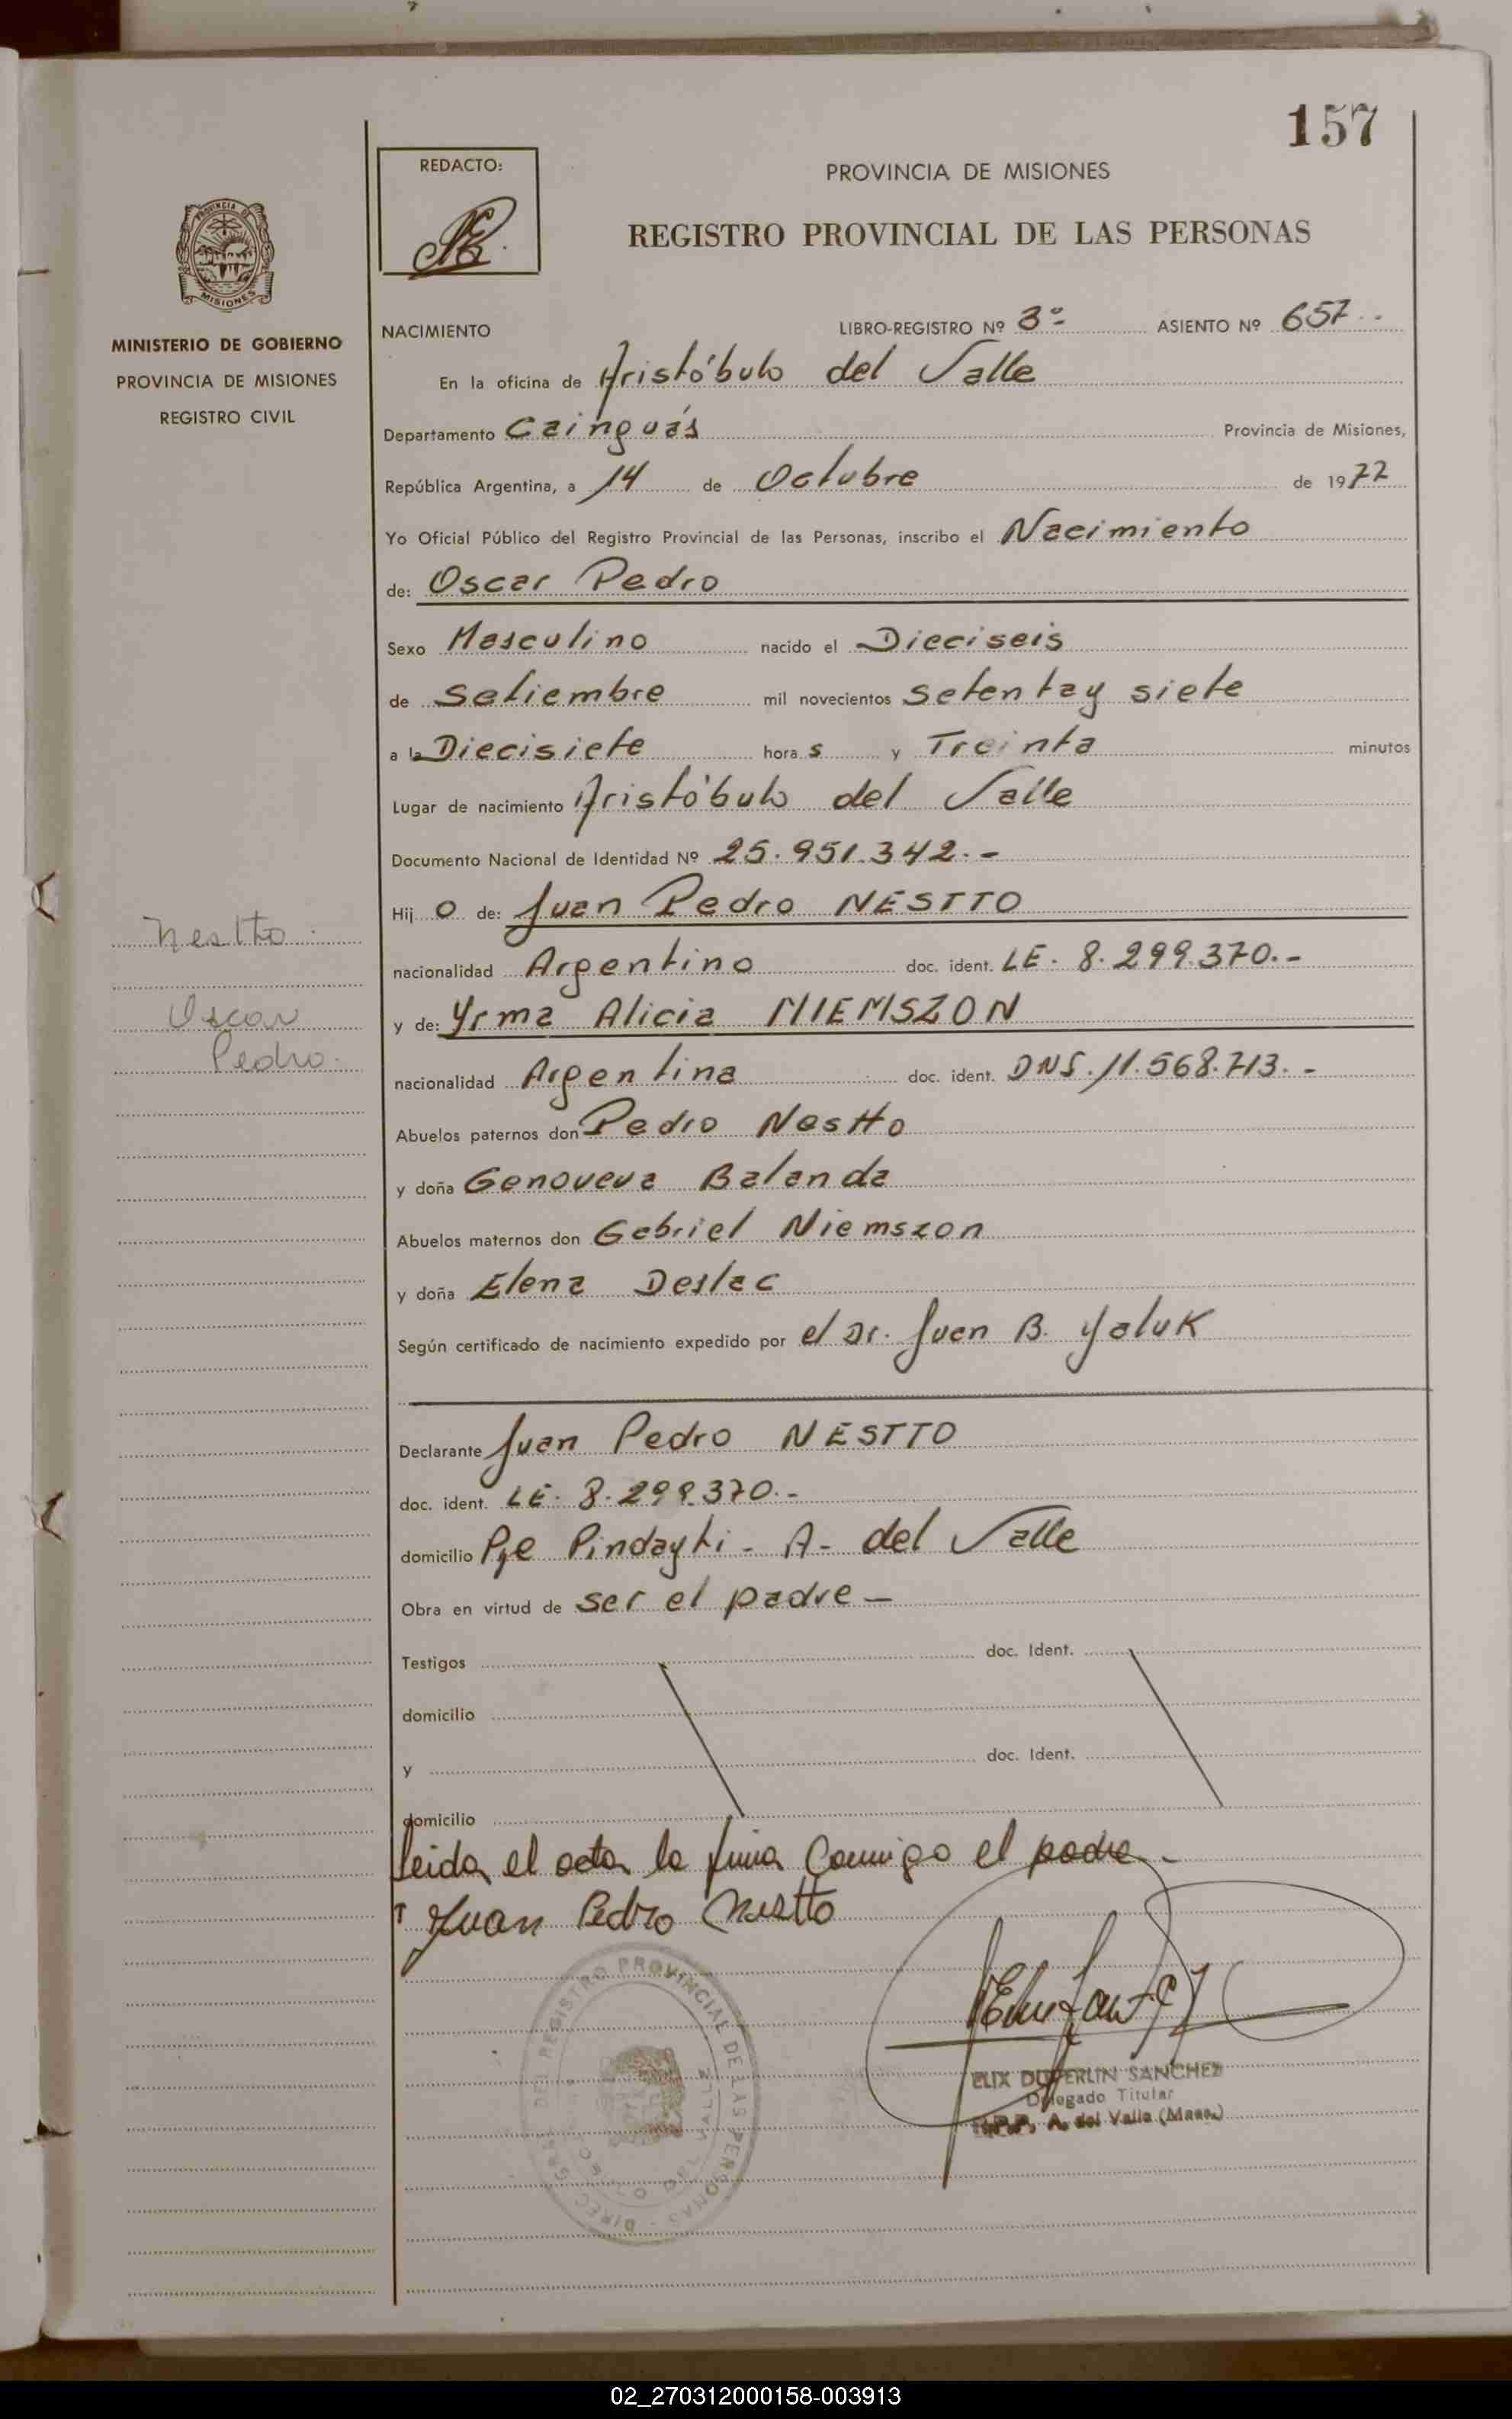 157
REDACTO:
PROVINCIA DE MISIONES
REGISTRO PROVINCIAL DE LAS PERSONAS
PROVINCIA DE
MISIONES
MINISTERIO DE GOBIERNO
PROVINCIA DE MISIONES
REGISTRO CIVIL
NACIMIENTO LIBRO-REGISTRO Nº 3º ASIENTO Nº 657
En la oficina de Aristóbulo del Valle
Departamento Cainguás Provincia de Misiones,
República Argentina, a 14 de Octubre de 1977
Yo Oficial Público del Registro Provincial de las Personas, inscribo el Nacimiento
de: Oscar Pedro
Sexo Masculino nacido el Dieciseis
de Setiembre mil novecientos setenta y siete
a la Diecisiete hora s y Treinta minutos
Lugar de nacimiento Aristóbulo del Valle
Documento Nacional de Identidad Nº 25.951.342.-
Hij o de: Juan Pedro NESTTO
nacionalidad Argentino doc. ident. LE. 8.299.370.-
y de: Yrma Alicia NIEMSZON
nacionalidad Argentina doc. ident. DNS. 11.568.713.-
Abuelos paternos don Pedro Nestto
y doña Genoveva Balanda
Abuelos maternos don Gabriel Niemszon
y doña Elena Deslac
Según certificado de nacimiento expedido por el Dr. Juan B. Yaluk
Nestto.
Oscar
Pedro.
Declarante Juan Pedro NESTTO
doc. ident. LE. 8.299.370.-
domicilio Pje Pindayti - A. del Valle
Obra en virtud de ser el padre -
Testigos doc. Ident.
domicilio
y doc. Ident.
domicilio
Leida el acta la firma conmigo el padre.-
Juan Pedro Nestto
REGISTRO PROVINCIAL DE LAS PERSONAS
DUPERLIN SANCHEZ
Delegado Titular
A. del Valle (Mnes.)
02_270312000158-003913